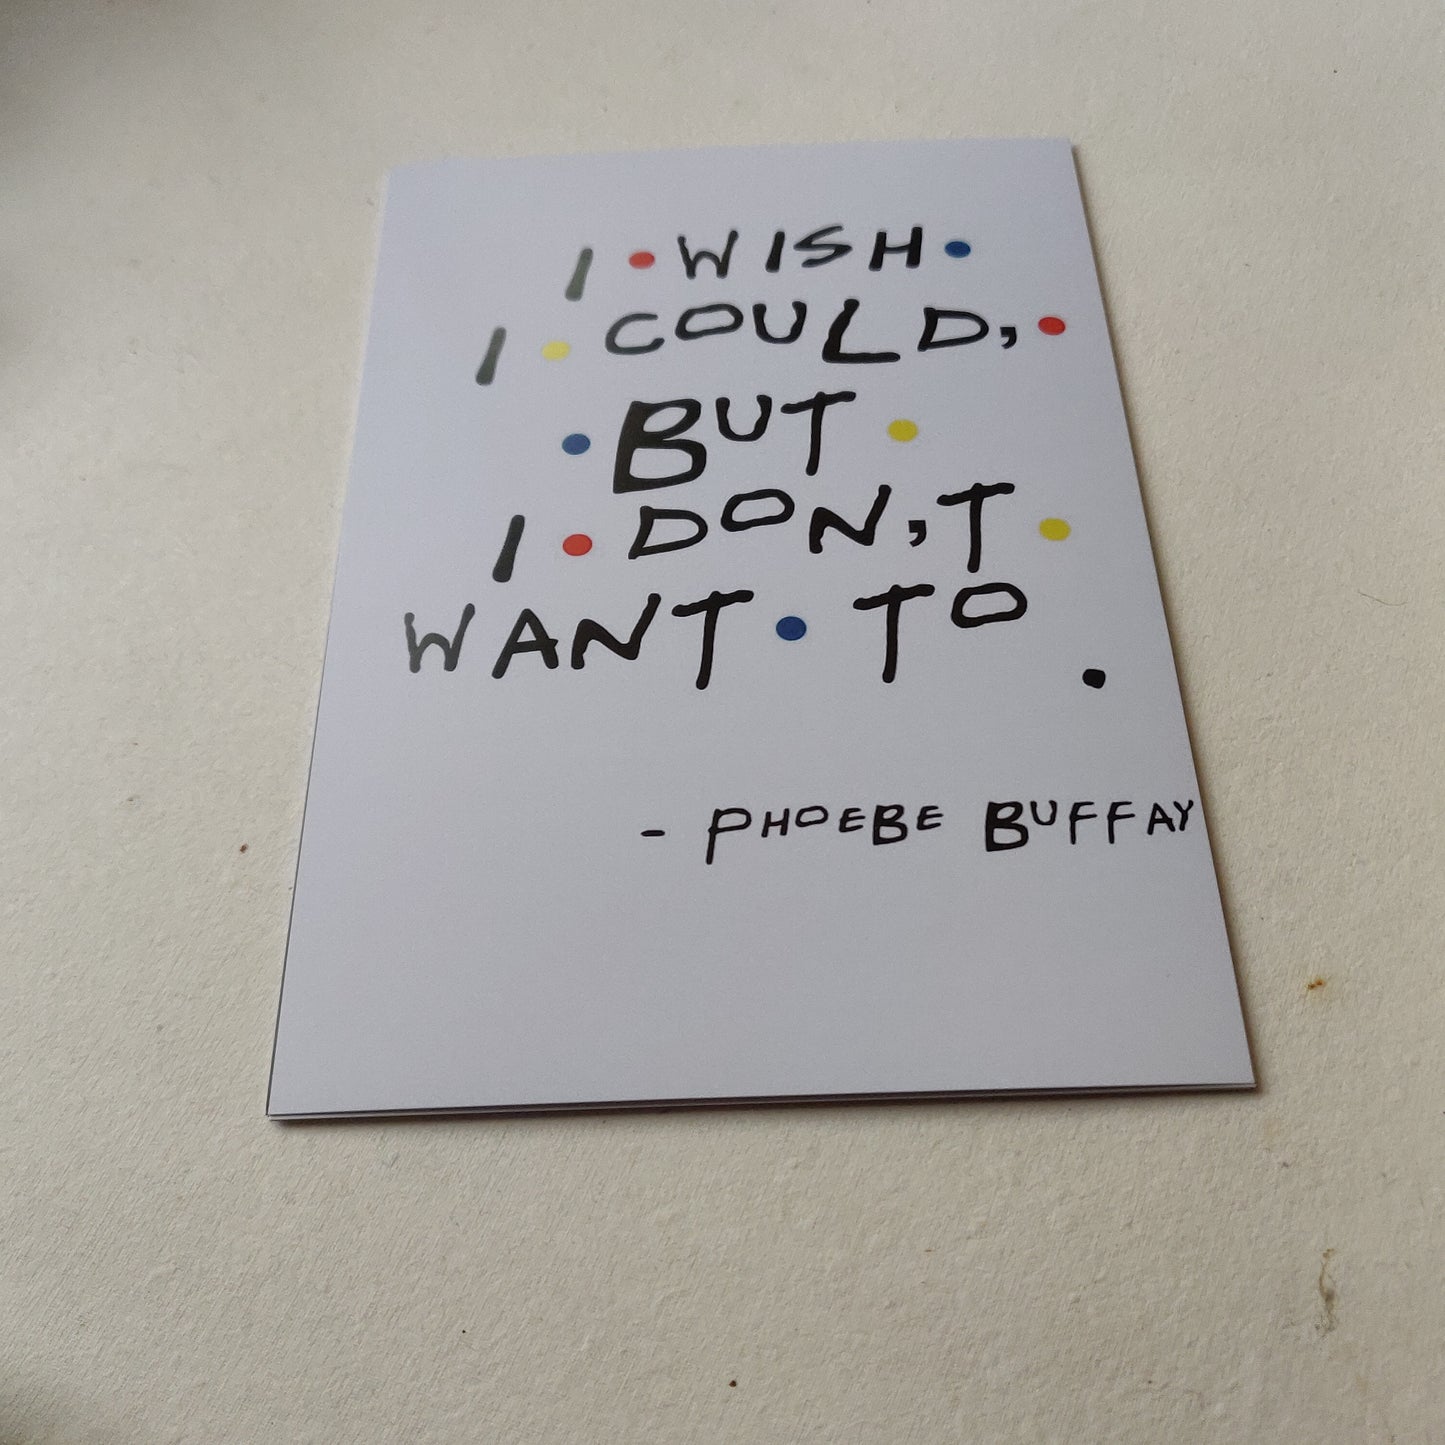 I • WISH •
I • COULD, •
• BUT •
I • DON,T •
WANT • TO .
- PHOEBE BUFFAY